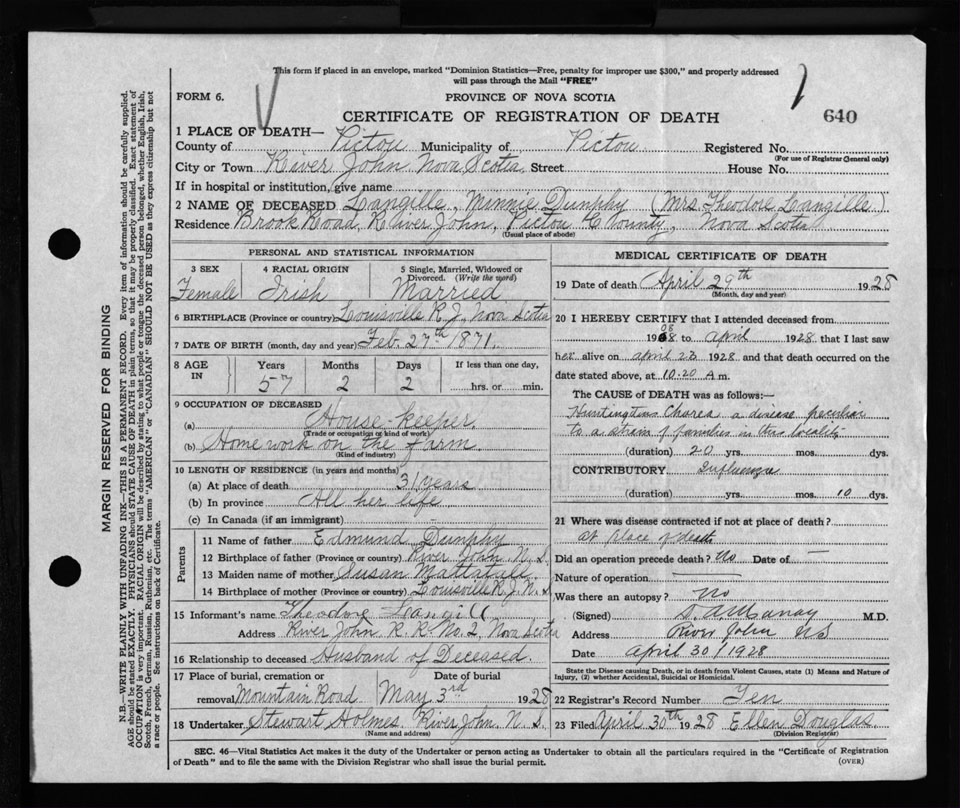 This form if placed in an envelope, marked "Dominion Statistics—Free, penalty for improper use $300," and properly addressed
will pass through the Mail "FREE"
FORM 6.
PROVINCE OF NOVA SCOTIA
CERTIFICATE OF REGISTRATION OF DEATH
640
1 PLACE OF DEATH—
County of Pictou Municipality of Pictou Registered No.
(For use of Registrar General only)
City or Town River John Nova Scotia Street House No.
If in hospital or institution, give name
2 NAME OF DECEASED Langille, Minnie Dumphy (Mrs Theodore Langille)
Residence Brook Road, River John, Pictou County, Nova Scotia
(Usual place of abode)
PERSONAL AND STATISTICAL INFORMATION
3 SEX 4 RACIAL ORIGIN 5 Single, Married, Widowed or
Divorced. (Write the word)
Female Irish Married
6 BIRTHPLACE (Province or country) Louisville R. J. Nova Scotia
7 DATE OF BIRTH (month, day and year) Feb 27th 1871.
8 AGE IN Years Months Days If less than one day,
57 2 2 hrs. or min.
9 OCCUPATION OF DECEASED
(a) House keeper.
(Trade or occupation or kind of work)
(b) Home work on the farm
(Kind of industry)
10 LENGTH OF RESIDENCE (in years and months)
(a) At place of death 31 years
(b) In province All her life
(c) In Canada (if an immigrant)
Parents
11 Name of father Edmund Dumphy
12 Birthplace of father (Province or country) River John, N. S.
13 Maiden name of mother Susan Mattatall.
14 Birthplace of mother (Province or country) Louisville R. J. N. S.
15 Informant's name Theodore Langill
Address River John R. R. No. 2, Nova Scotia
16 Relationship to deceased Husband of Deceased.
17 Place of burial, cremation or Date of burial
removal Mountain Road May 3rd 1928
18 Undertaker Stewart Holmes. River John. N. S.
(Name and address)
MEDICAL CERTIFICATE OF DEATH
19 Date of death April 29th 1928
(Month, day and year)
20 I HEREBY CERTIFY that I attended deceased from
1908 to April 1928 that I last saw
her alive on April 23 1928 and that death occurred on
date stated above, at 10.20 A m.
The CAUSE of DEATH was as follows:—
Huntingtons Chorea a disease peculiar
to a strain of families in this locality
(duration) 20 yrs. mos. dys.
CONTRIBUTORY Influenza
(duration) yrs. mos. 10 dys.
21 Where was disease contracted if not at place of death?
at place of death
Did an operation precede death? No Date of —
Nature of operation —
Was there an autopsy? No
(Signed) M.D.
Address River John NS
Date April 30/1928
State the Disease causing Death, or in death from Violent Causes, state (1) Means and Nature of
Injury, (2) whether Accidental, Suicidal or Homicidal.
22 Registrar's Record Number Ten
23 Filed April 30th 1928 Ellen Douglas
(Division Registrar)
SEC. 46—Vital Statistics Act makes it the duty of the Undertaker or person acting as Undertaker to obtain all the particulars required in the "Certificate of Registration
of Death" and to file the same with the Division Registrar who shall issue the burial permit.
(OVER)
MARGIN RESERVED FOR BINDING
N.B.—WRITE PLAINLY WITH UNFADING INK—THIS IS A PERMANENT RECORD. Every item of information should be carefully supplied.
AGE should be stated EXACTLY. PHYSICIANS should STATE CAUSE OF DEATH in plain terms, so that it may be properly classified. Exact statement of
OCCUPATION is very important. RACIAL ORIGIN will be described by stating to what people or tongue the deceased person belonged, whether English, Irish,
Scotch, French, German, Russian, Ruthenian, etc. The terms "AMERICAN" or "CANADIAN" SHOULD NOT BE USED as they express citizenship but not
a race or people. See instructions on back of Certificate.